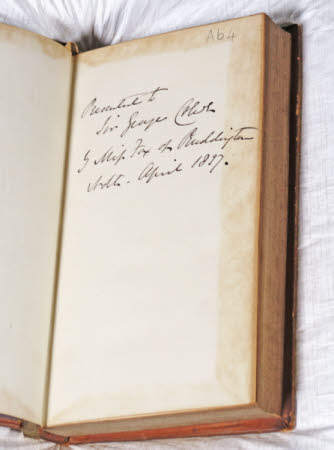 Ab4
Presented to
Sir George
by Miss Fox of Ruddington
Notts. April 1897.